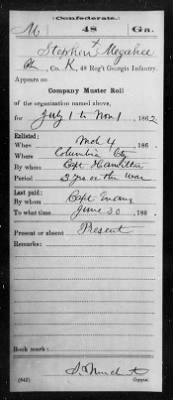 Confederate.
M 48 Ga.
Stephen Megahee
Co. K, 48 Reg't Georgia Infantry.
Appears on
Company Muster Roll
of the organization named above,
for July 1 to Nov 1, 1862.
Enlisted:
When Mch 4, 186 .
Where Columbia Cty
By whom Capt Hamilton
Period 3 yrs or the war
Last paid:
By whom Capt
To what time June 30, 186 .
Present or absent Present
Remarks:
Book mark:
(642) Copyist.